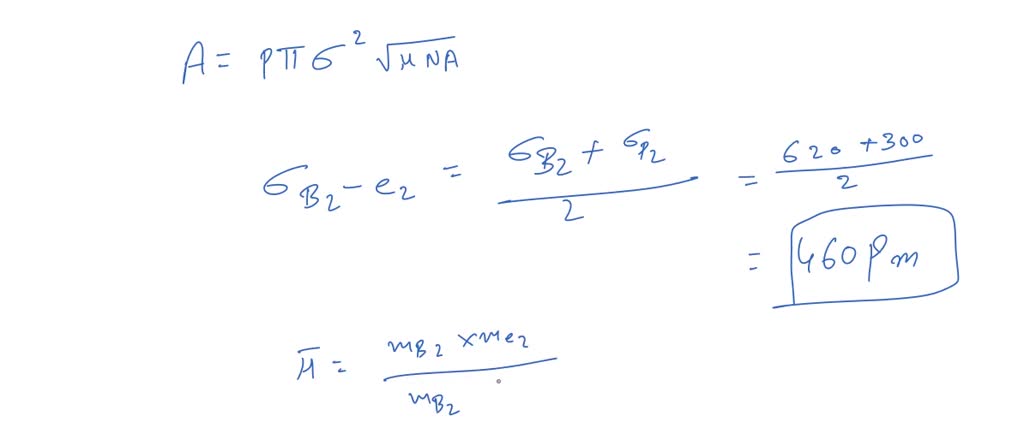 A = pπσ² √μNA
σB₂-e₂ = (σB₂ + σP₂) / 2 = (620 + 300) / 2
= 460 pm
μ̄ = (mB₂ × me₂) / mB₂